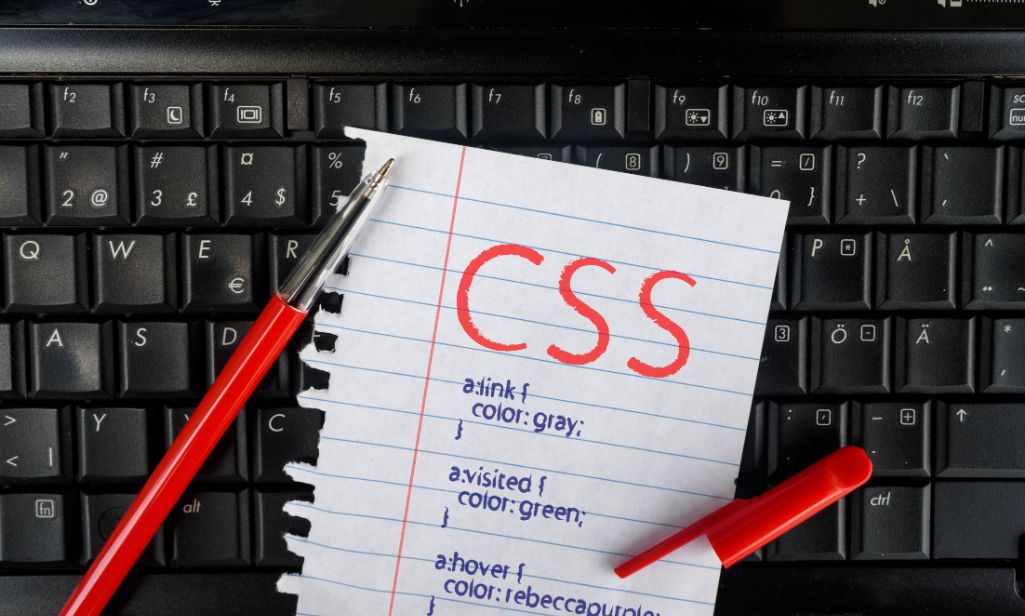 f2 f3 f4 f5 f6 f7 f8 f9 f10 f11 f12
" # ¤ % ( 8 ) 9 = / ? `
2 @ 3 £ 4 $ 5 0 } + \ ´
Q W E R P * Å ^
€ ¨ ~
A S D 3 Ö - Ä *
>
< | Y C : - + ↑
fn alt ctrl
CSS
a:link {
color: gray;
}
a:visited {
color: green;
}
a:hover {
color: rebeccapurple;
}